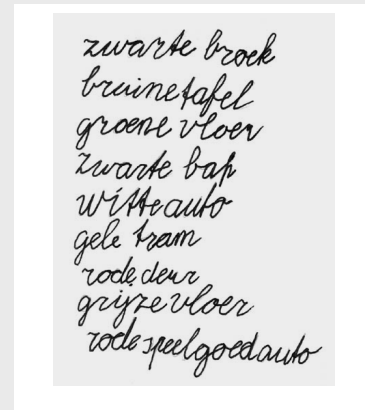 zwarte broek
bruine tafel
groene vloer
zwarte bap
witte auto
gele tram
rode deur
grijze vloer
rode speelgoedauto